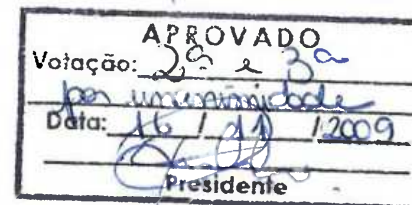 APROVADO
Votação: 2ª e 3ª
por unanimidade
Data: 16 / 11 / 2009
Presidente